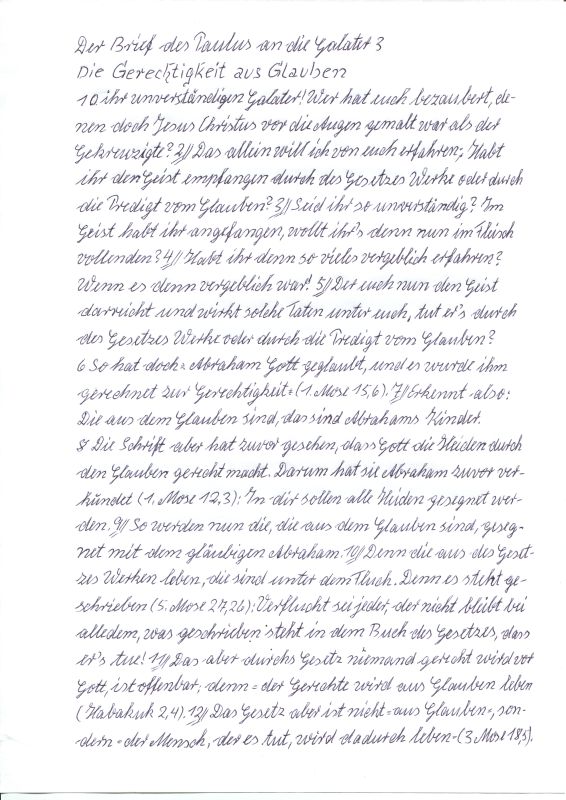 Der Brief des Paulus an die Galater 3
Die Gerechtigkeit aus Glauben
1 O ihr unverständigen Galater! Wer hat euch bezaubert, de-
nen doch Jesus Christus vor die Augen gemalt war als der
Gekreuzigte? 2// Das allein will ich von euch erfahren; Habt
ihr den Geist empfangen durch des Gesetzes Werke oder durch
die Predigt vom Glauben? 3// Seid ihr so unverständig? Im
Geist habt ihr angefangen, wollt ihr's denn nun im Fleisch
vollenden? 4// Habt ihr denn so vieles vergeblich erfahren?
Wenn es denn vergeblich war! 5// Der euch nun den Geist
darreicht und wirkt solche Taten unter euch, tut er's durch
des Gesetzes Werke oder durch die Predigt vom Glauben?
6 So hat doch = Abraham Gott geglaubt, und es wurde ihm
gerechnet zur Gerechtigkeit = (1. Mose 15,6). 7// Erkennt also:
Die aus dem Glauben sind, das sind Abrahams Kinder.
8/ Die Schrift aber hat zuvor gesehen, dass Gott die Heiden durch
den Glauben gerecht macht. Darum hat sie Abraham zuvor ver-
kündet (1. Mose 12,3): In dir sollen alle Heiden gesegnet wer-
den. 9// So werden nun die, die aus dem Glauben sind, geseg-
net mit dem gläubigen Abraham. 10// Denn die aus des Geset-
zes Werken leben, die sind unter dem Fluch. Denn es steht ge-
schrieben (5. Mose 27,26): Verflucht sei jeder, der nicht bleibt bei
alledem, was geschrieben steht in dem Buch des Gesetzes, dass
er's tue! 11// Das aber durchs Gesetz niemand gerecht wird vor
Gott, ist offenbar; denn = der Gerechte wird aus Glauben leben
(Habakuk 2,4). 12// Das Gesetz aber ist nicht = aus Glauben =, son-
dern = der Mensch, der es tut, wird dadurch leben = (3. Mose 18,5).